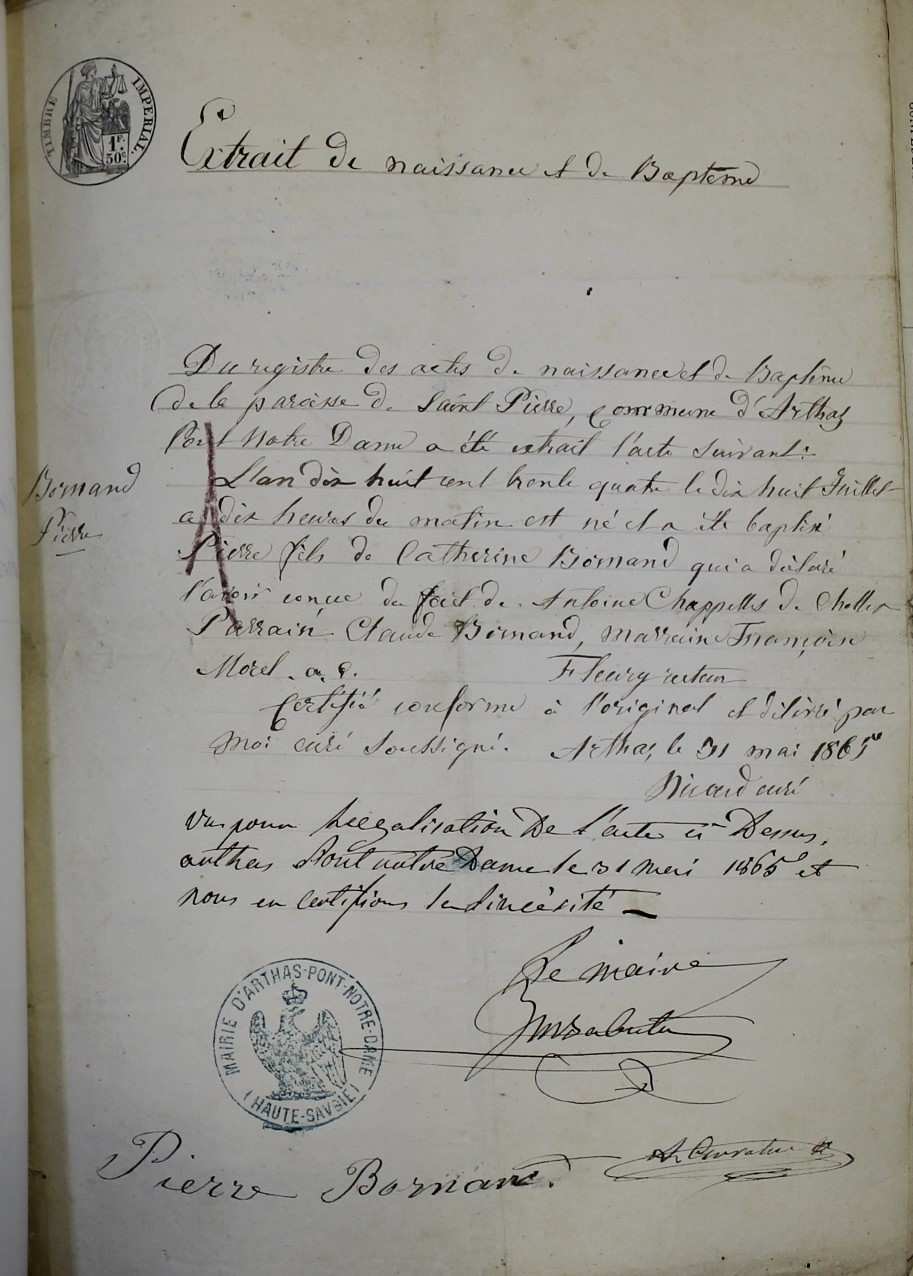 TIMBRE IMPERIAL.
1F. 50c.
Extrait de naissance et de Baptême
Du registre des actes de naissance et de Baptême
de la paroisse de Saint Pierre, Commune d'Arthaz
Pont Notre Dame a été extrait l'acte suivant:
Bornand
Pierre
L'an dix huit cent trente quatre le dix huit Juillet
a dix heures du matin est né et a été baptisé
Pierre fils de Catherine Bornand qui a déclaré
l'avoir conçue du fait de Antoine Chappelles de
Parrain Claude Bornand, marraine Françoise
Morel. Fleury recteur
Certifié conforme à l'original et délivré par
moi curé soussigné. Arthaz, le 31 mai 1865
curé
Vu pour Leegalisation De l'acte ci Dessus,
arthas Pont notre Dame le 31 mai 1865 et
nous en Certifions la Sincérité
Le maire
MAIRIE D'ARTHAS-PONT-NOTRE-DAME
(HAUTE-SAVOIE)
Pierre Bornand.